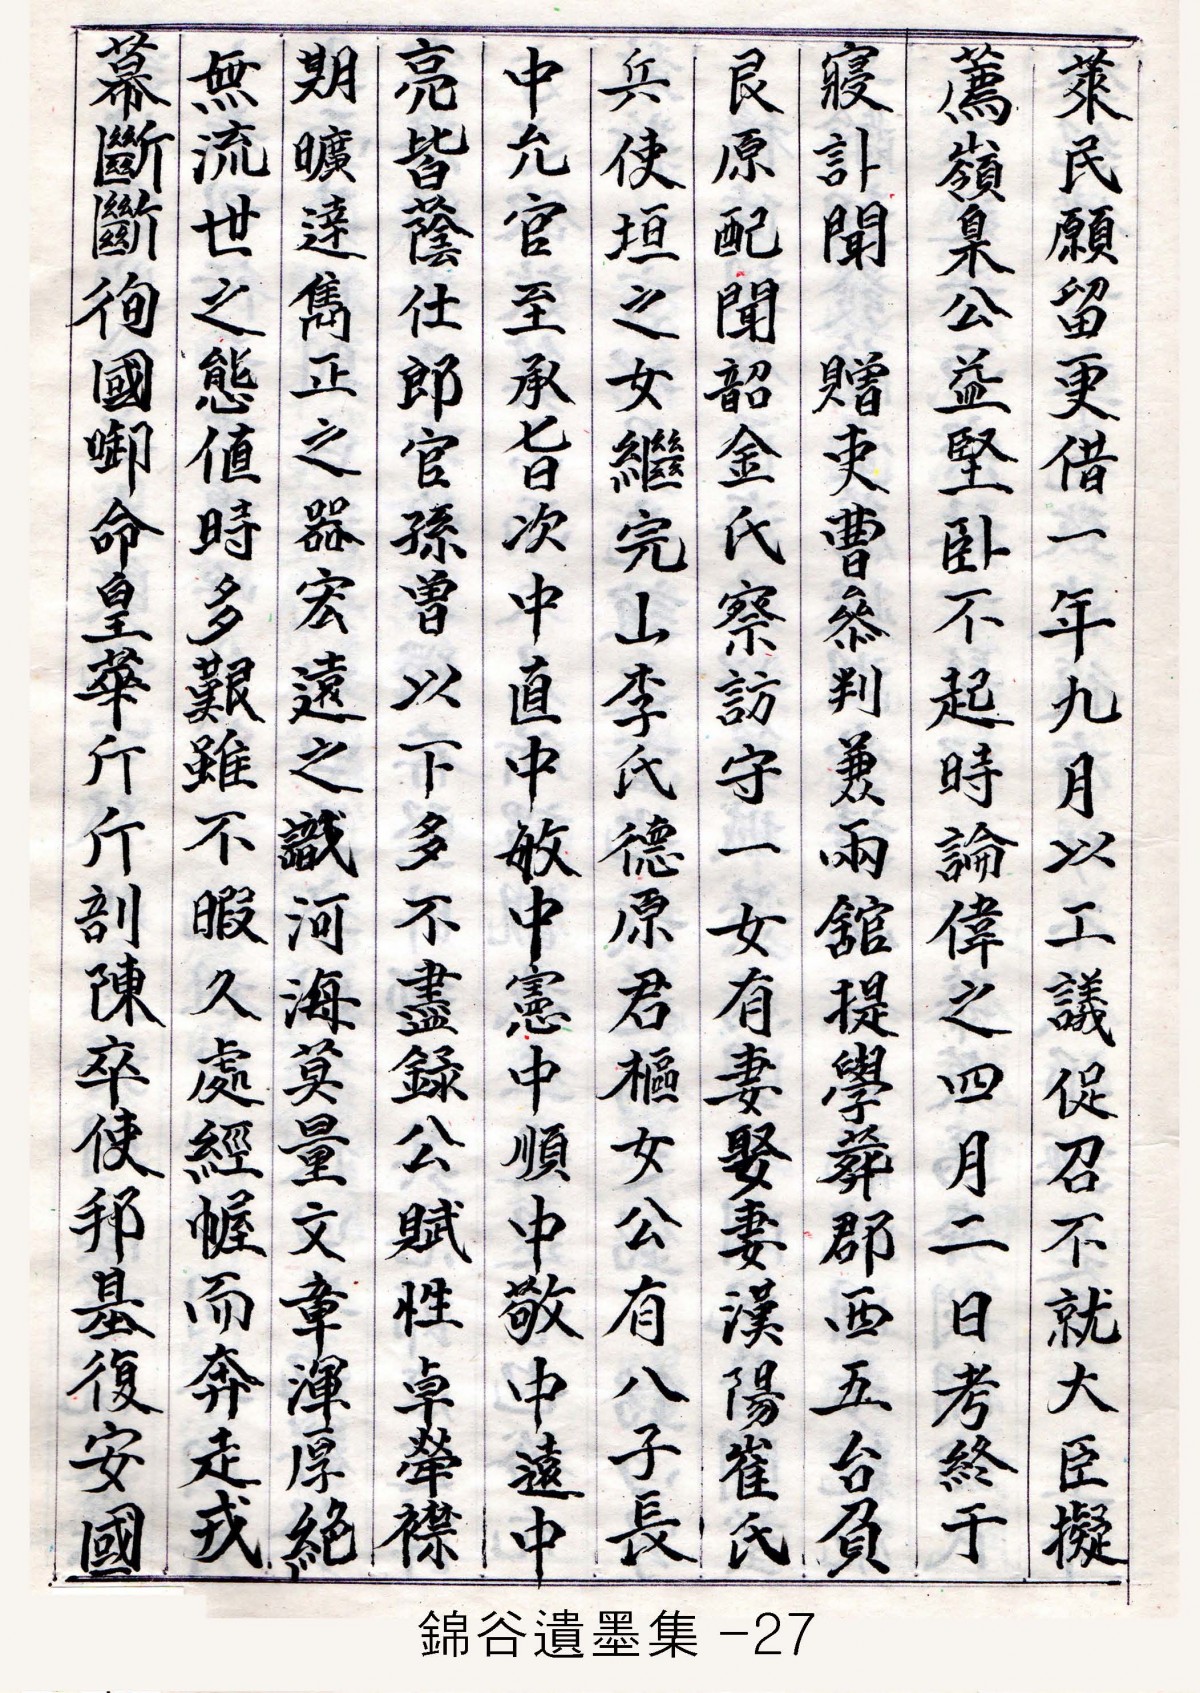 萊民願留更借一年九月以工議促召不就大臣擬
薦嶺臬公益堅卧不起時論偉之四月二日考終于
寢訃聞 贈吏曹叅判兼兩舘提學葬郡西五台負
艮原配聞韶金氏察訪守一女有妻娶妻漢陽崔氏
兵使垣之女繼完山李氏德原君樞女公有八子長
中允官至承旨次中直中敏中憲中順中敬中遠中
亮皆蔭仕郎官孫曽以下多不盡録公賦性卓犖襟
期曠達雋正之器宏遠之識河海莫量文章渾厚絕
無流世之態値時多艱雖不暇久處經幄而奔走戎
幕斷斷徇國啣命皇華斤斤剖陳卒使邦基復安國
錦谷遺墨集 -27